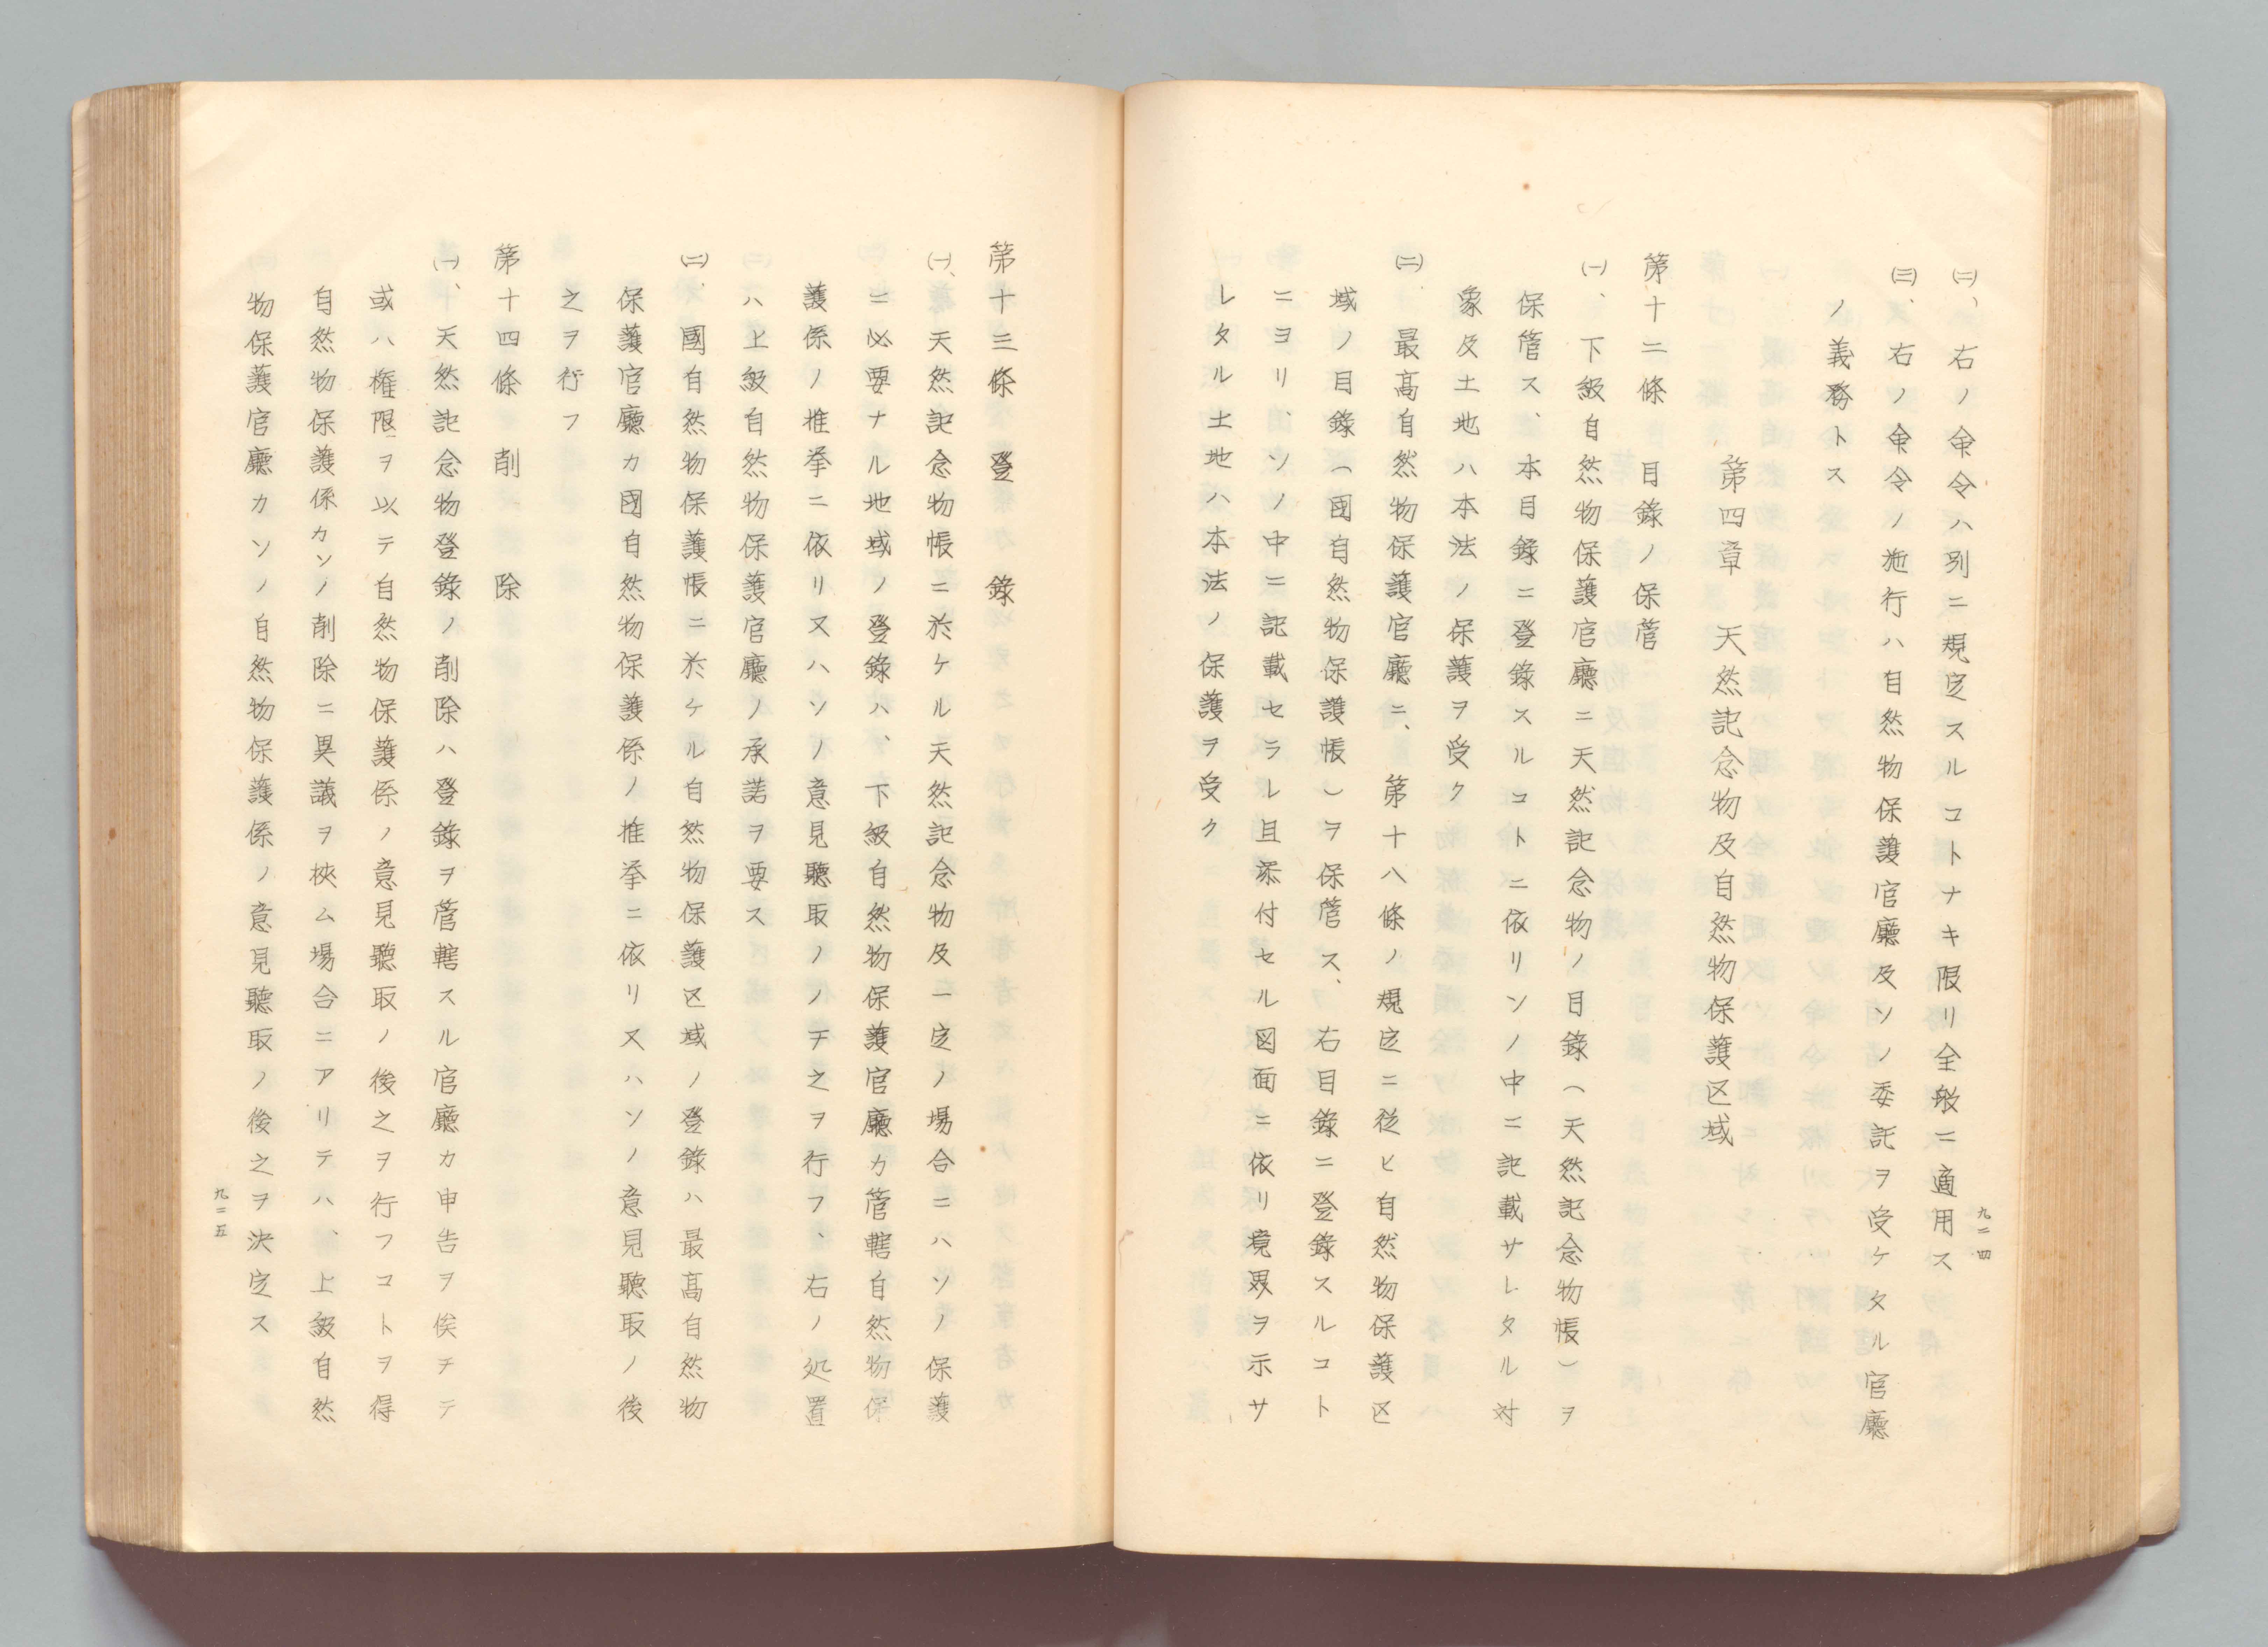 九二四
(二)、右ノ命令ハ別ニ規定スルコトナキ限リ全般ニ適用ス
(三)、右ノ命令ノ施行ハ自然物保護官廳及ソノ委託ヲ受ケタル官廳
ノ義務トス
第四章 天然記念物及自然物保護区域
第十二條 目錄ノ保菅
(一)、下級自然物保護官廳ニ天然記念物ノ目錄(天然記念物帳)ヲ
保菅ス、本目錄ニ登錄スルコトニ依リソノ中ニ記載サレタル対
象及土地ハ本法ノ保護ヲ受ク
(二) 最高自然物保護官廳ニ、第十八條ノ規定ニ従ヒ自然物保護区
域ノ目錄(國自然物保護帳)ヲ保菅ス、右目錄ニ登錄スルコト
ニヨリ、ソノ中ニ記載セラレ且添付セル図面ニ依リ境界ヲ示サ
レタル土地ハ本法ノ保護ヲ受ク
第十三條 登錄
(一)、天然記念物帳ニ於ケル天然記念物及一定ノ場合ニハソノ保護
ニ必要ナル地域ノ登錄ハ、下級自然物保護官廳カ菅轄自然物保
護係ノ推挙ニ依リ又ハソノ意見聽取ノノチ之ヲ行フ、右ノ処置
ハ上級自然物保護官廳ノ承諾ヲ要ス
(二)、國自然物保護帳ニ於ケル自然物保護区域ノ登錄ハ最高自然物
保護官廳カ國自然物保護係ノ推挙ニ依リ又ハソノ意見聽取ノ後
之ヲ行フ
第十四條 削除
(一)、天然記念物登錄ノ削除ハ登錄ヲ菅轄スル官廳カ申告ヲ俟チテ
或ハ権限ヲ以テ自然物保護係ノ意見聽取ノ後之ヲ行フコトヲ得
自然物保護係カソノ削除ニ異議ヲ挾ム場合ニアリテハ、上級自然
物保護官廳カソノ自然物保護係ノ意見聽取ノ後之ヲ決定ス
九二五